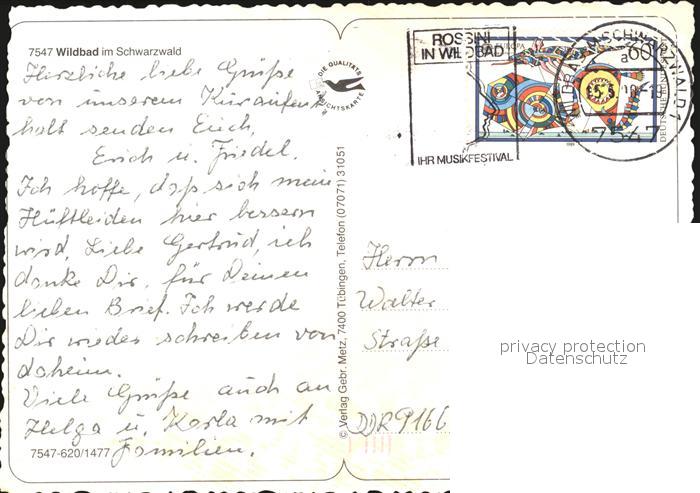 7547 Wildbad im Schwarzwald
Herzliche liebe Grüße
von unserem Kuraufent
halt senden Euch,
Erich u. Friedel.
Ich hoffe, daß sich mein
Hüftleiden hier bessern
wird, Liebe Gertrud, ich
danke Dir, für Deinen
lieben Brief. Ich werde
Dir wieder schreiben von
daheim.
Viele Grüße auch an
Helga u. Karla mit
Familien.
7547-620/1477
DIE QUALITÄTS
© Verlag Gebr. Metz, 7400 Tübingen, Telefon (07071) 31051
ROSSINI
IN WILDBAD
IHR MUSIKFESTIVAL
EUROPA
60
DEUTSCHE BUNDESPOST
WILDBAD IM SCHWARZWALD 1
a
7547
Herrn
Walter
Straße
DDR 9166
privacy protection
Datenschutz